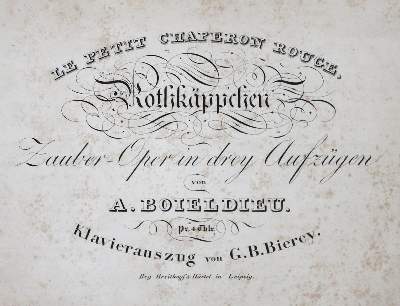 LE PETIT CHAPERON ROUGE,
Rothkäppchen
Zauber-Oper in drey Aufzügen
von
A. BOIELDIEU.
Pr. 4 Thlr.
Klavierauszug von G.B. Bierey.
Bey Breitkopf & Härtel in Leipzig.